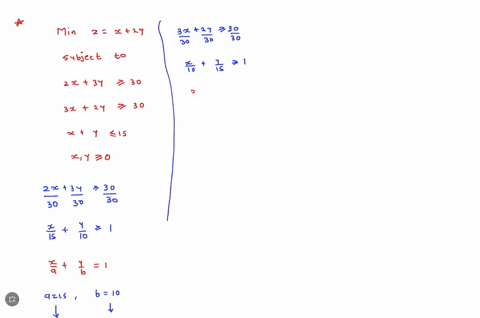 Min z = x + 2y
subject to
2x + 3y ≥ 30
3x + 2y ≥ 30
x + y ≤ 15
x, y ≥ 0
2x/30 + 3y/30 ≥ 30/30
x/15 + y/10 ≥ 1
x/a + y/b = 1
a = 15, b = 10
3x/30 + 2y/30 ≥ 30/30
x/10 + y/15 ≥ 1